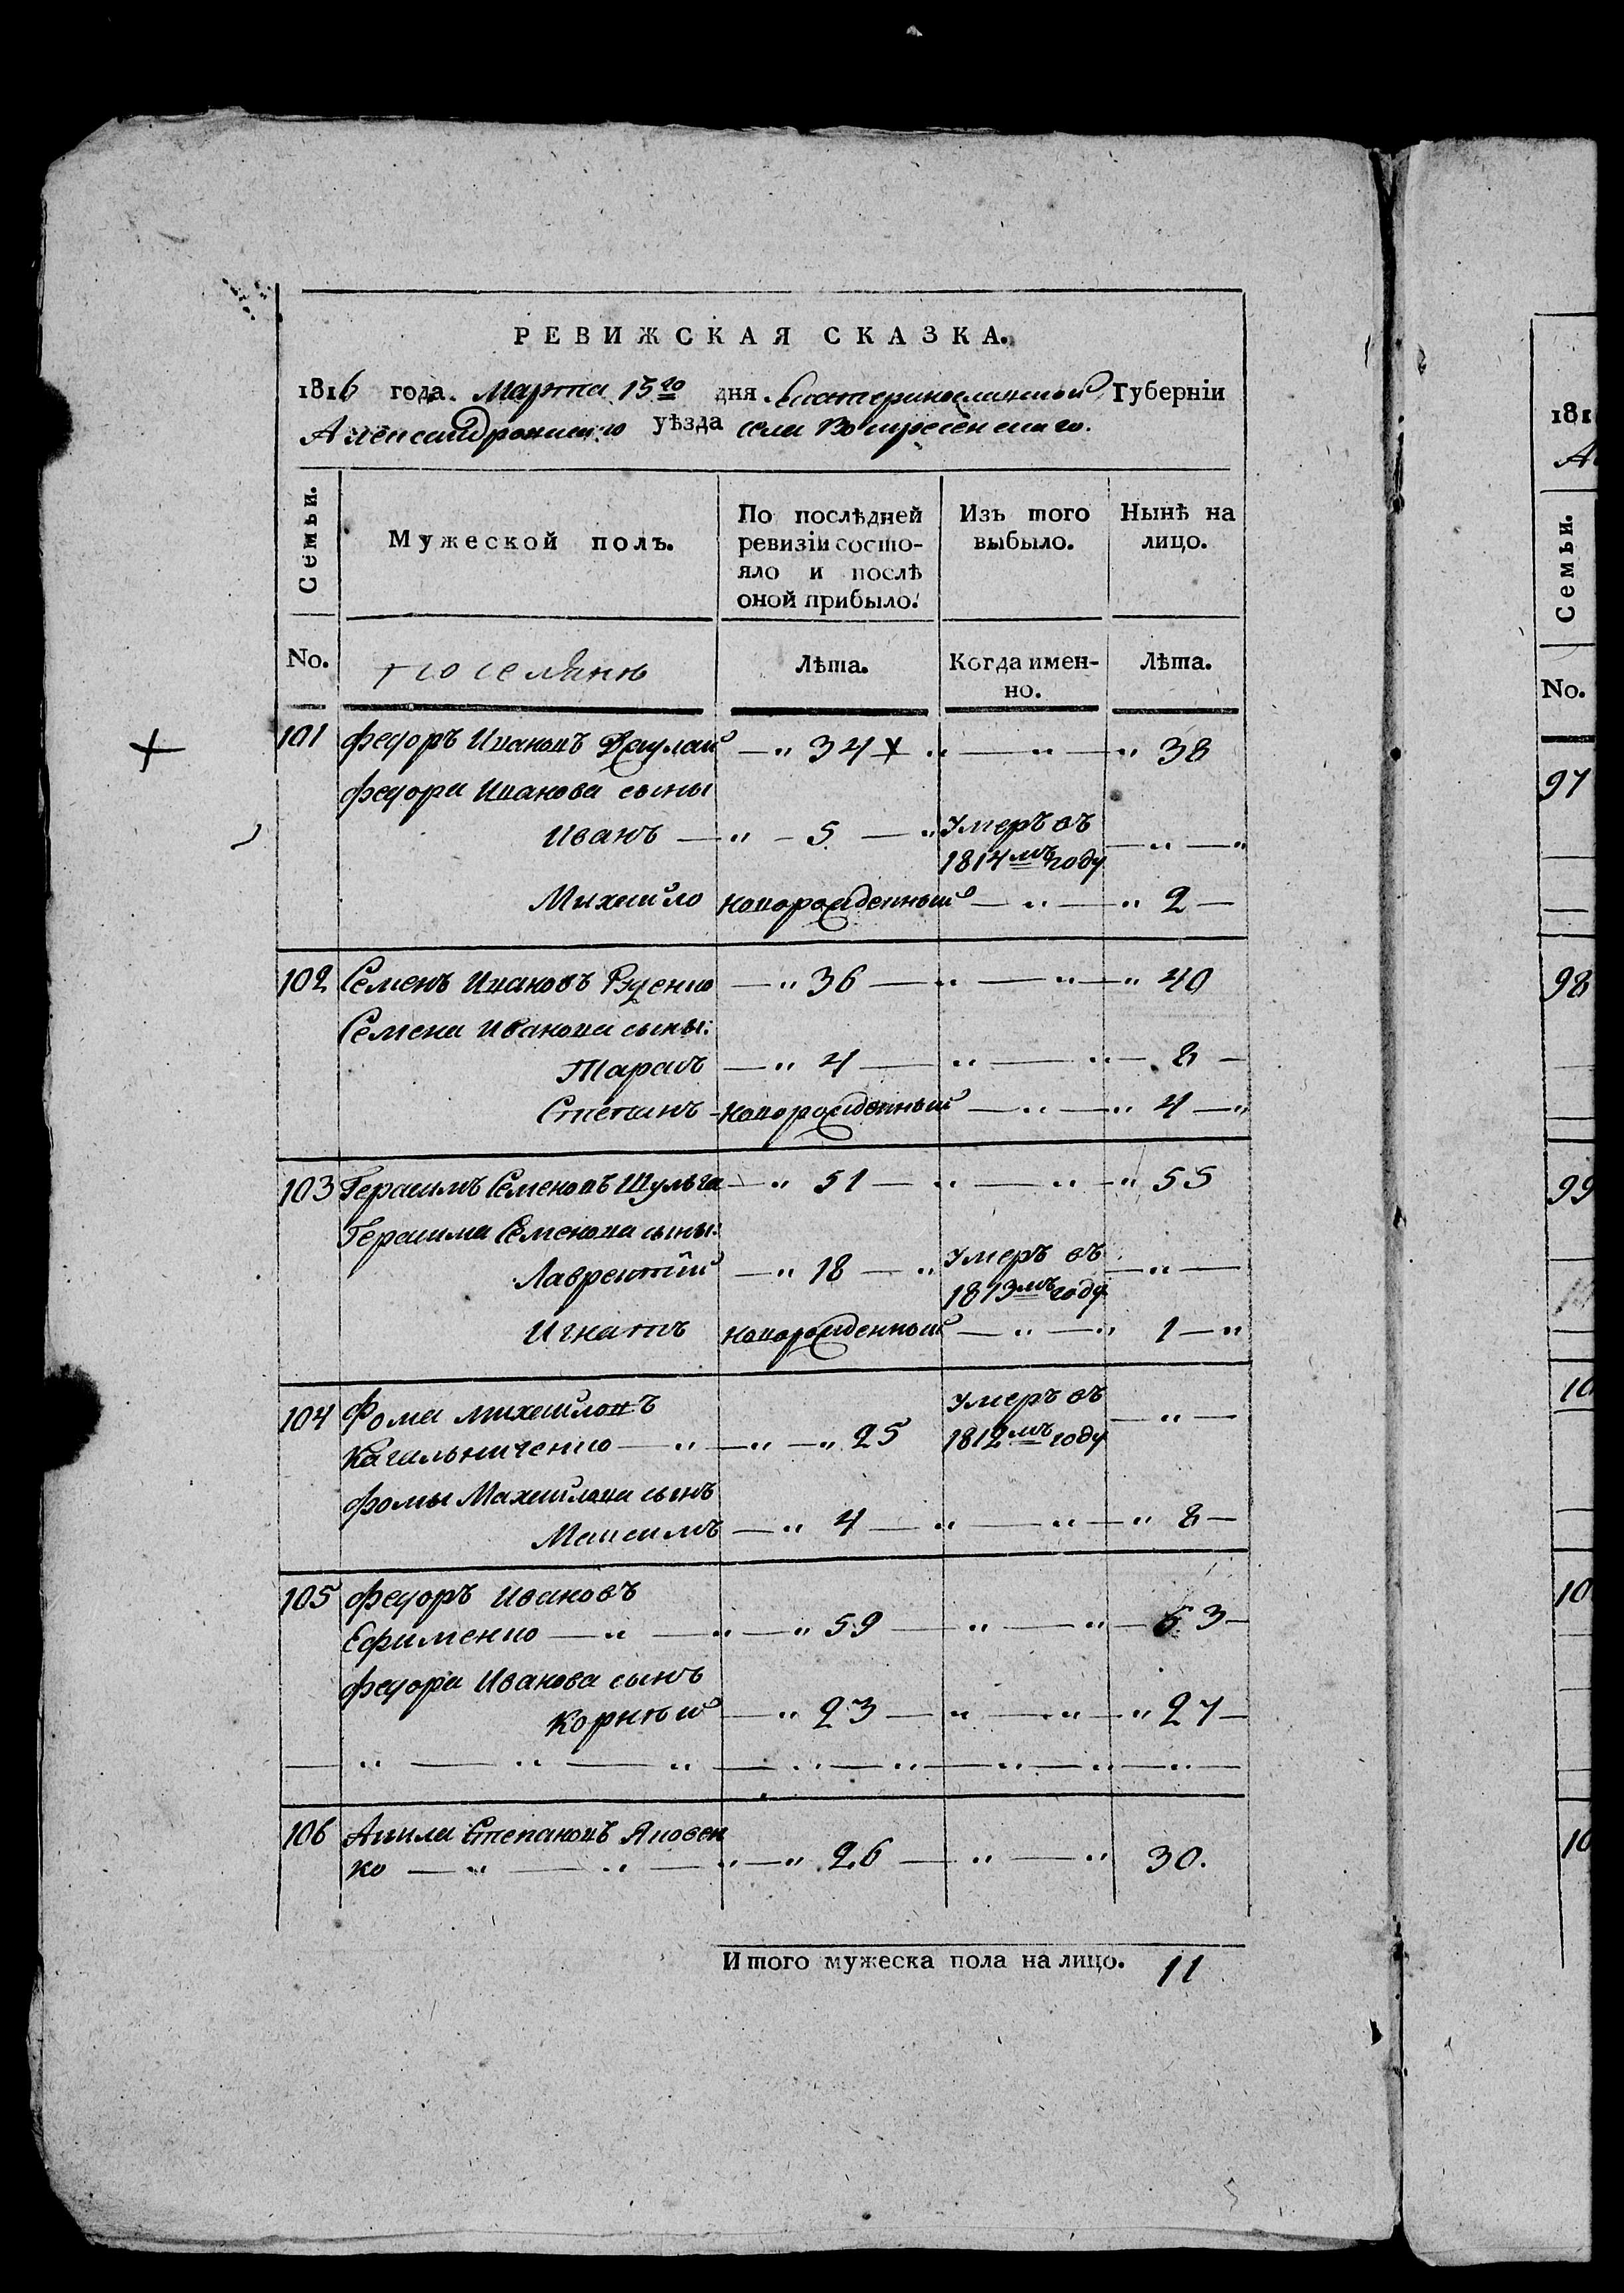 РЕВИЖСКАЯ СКАЗКА.
1816 года Марта 15го дня Екатеринославской Губернiи
Александровского уѣзда села Вознесенскаго.
Семьи. Мужеской полъ. По послѣдней ревизiи состо-яло и послѣ оной прибыло. Изъ того выбыло. Нынѣ на лицо.
No. поселянъ Лѣта. Когда имен-но. Лѣта.
101 Федоръ Ивановъ — " 34 + " — " — " 38
Федора Иванова сыны
Иванъ — " — 5 — " Умеръ въ 1814мъ году — " — "
Михайло новорожденный — " — " 2 —
102 Семенъ Ивановъ Руденко — " 36 — " — " — " 40
Семена Иванова сыны:
Тарасъ — " 4 — " — " — 8 —
Степанъ новорожденный — " — " 4 — "
103 Герасимъ Семеновъ Шульга — " 51 — " — " — " 55
Герасима Семенова сыны:
Лаврентiй — " 18 — " Умеръ въ 1813мъ году — " —
Игнатъ новорожденный — " — " 1 — "
104 Фома Михайловъ
Кагальниченко — " — " — " 25 Умеръ въ 1812мъ году — " —
Фомы Михайлова сынъ
Максимъ — " 4 — " — " — " 8 —
105 Федоръ Ивановъ
Ефименко — " — " — " 59 — " — " — 63 —
Федора Иванова сынъ
Корнѣй — " 23 — " — " — " 27 —
— " — " — " — " — " — " — " — " —
106 Степановъ Яковен
ко — " — " — " — " 26 — " — " 30.
Итого мужеска пола на лицо. 11
181
А
Семьи.
No.
97
98
99
10
10
10